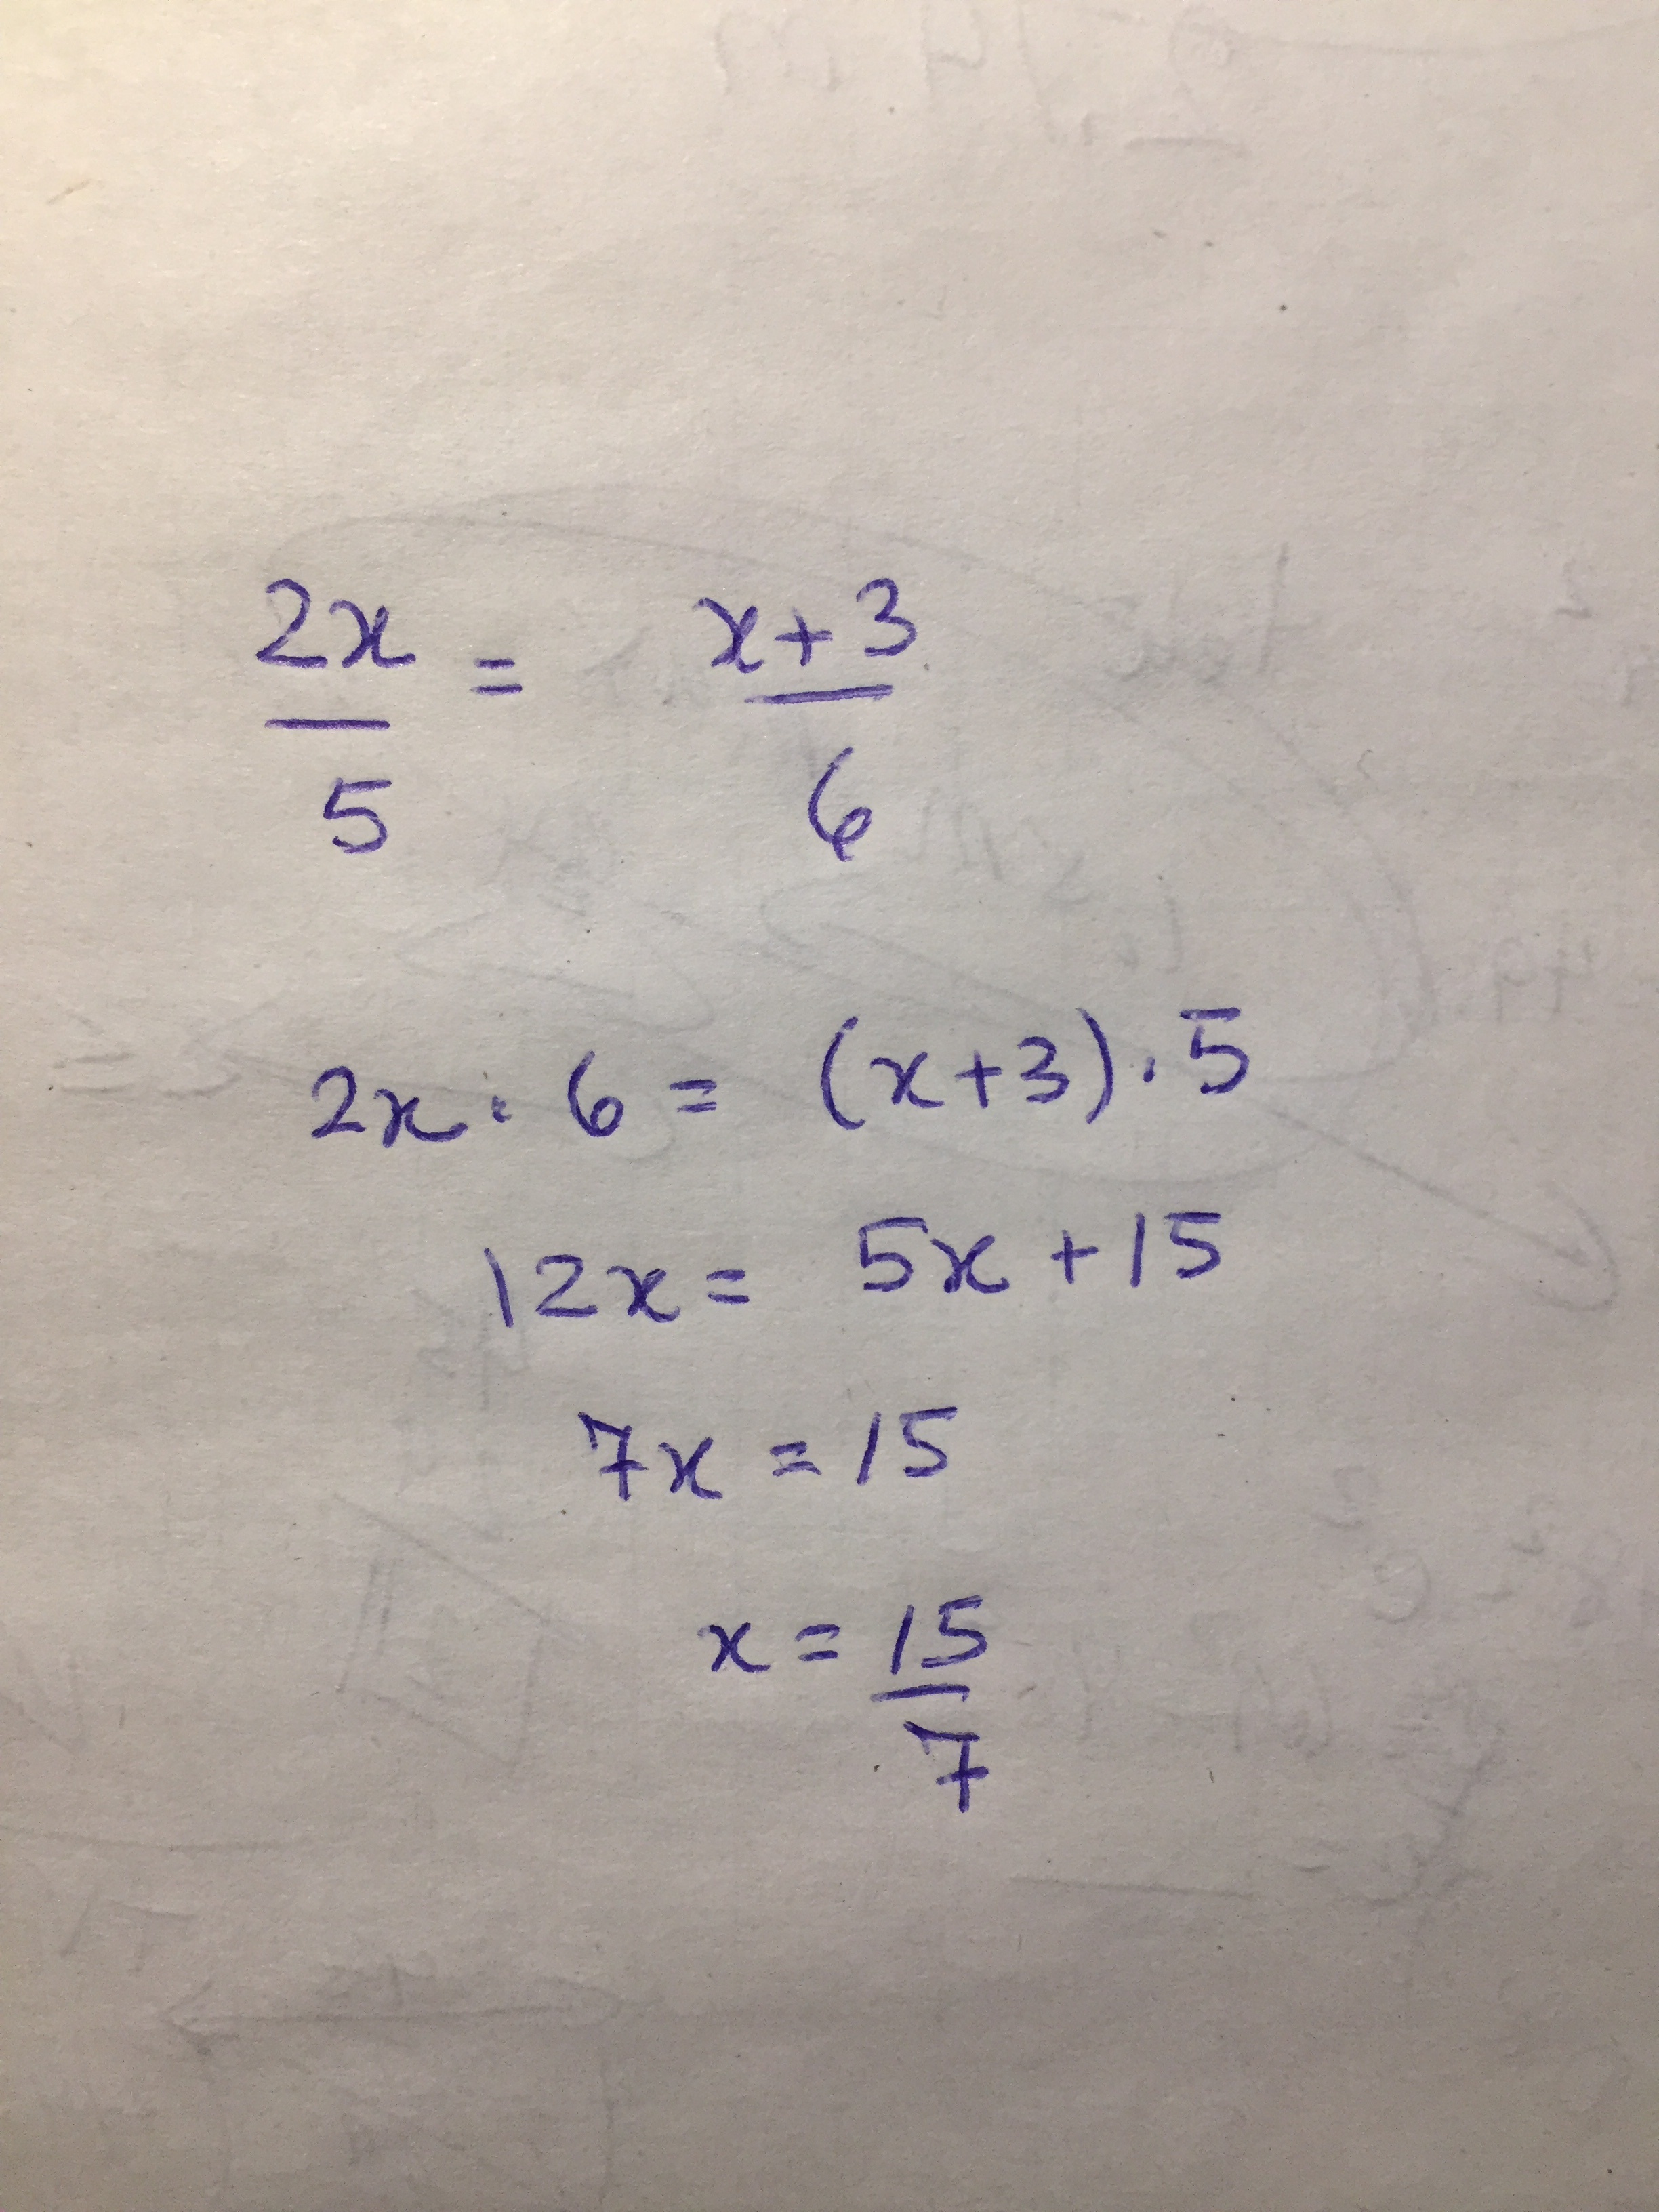 2x/5 = x+3/6
2x · 6 = (x+3) · 5
12x = 5x + 15
7x = 15
x = 15/7